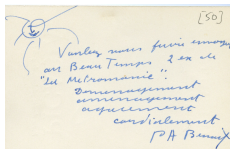 [50]
Voulez nous faire envoyer
au Beau Temps 2 ex de
"La Métromanie".
Demenagement
amenagement
agacement
cordialement
P A Benoit